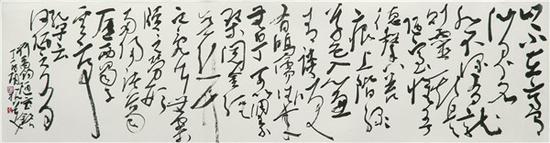 山不在高
有仙则名
水不在深有龙
则灵斯是
陋室惟吾
德馨苔
痕上阶绿
草色入帘
青谈笑
有鸿儒往来
无白丁可以调素
琴阅金经
无丝竹之乱
耳无案牍
之劳形
南阳诸葛
庐西蜀子
云亭
孔子云
何陋之有
刘禹锡陋室铭